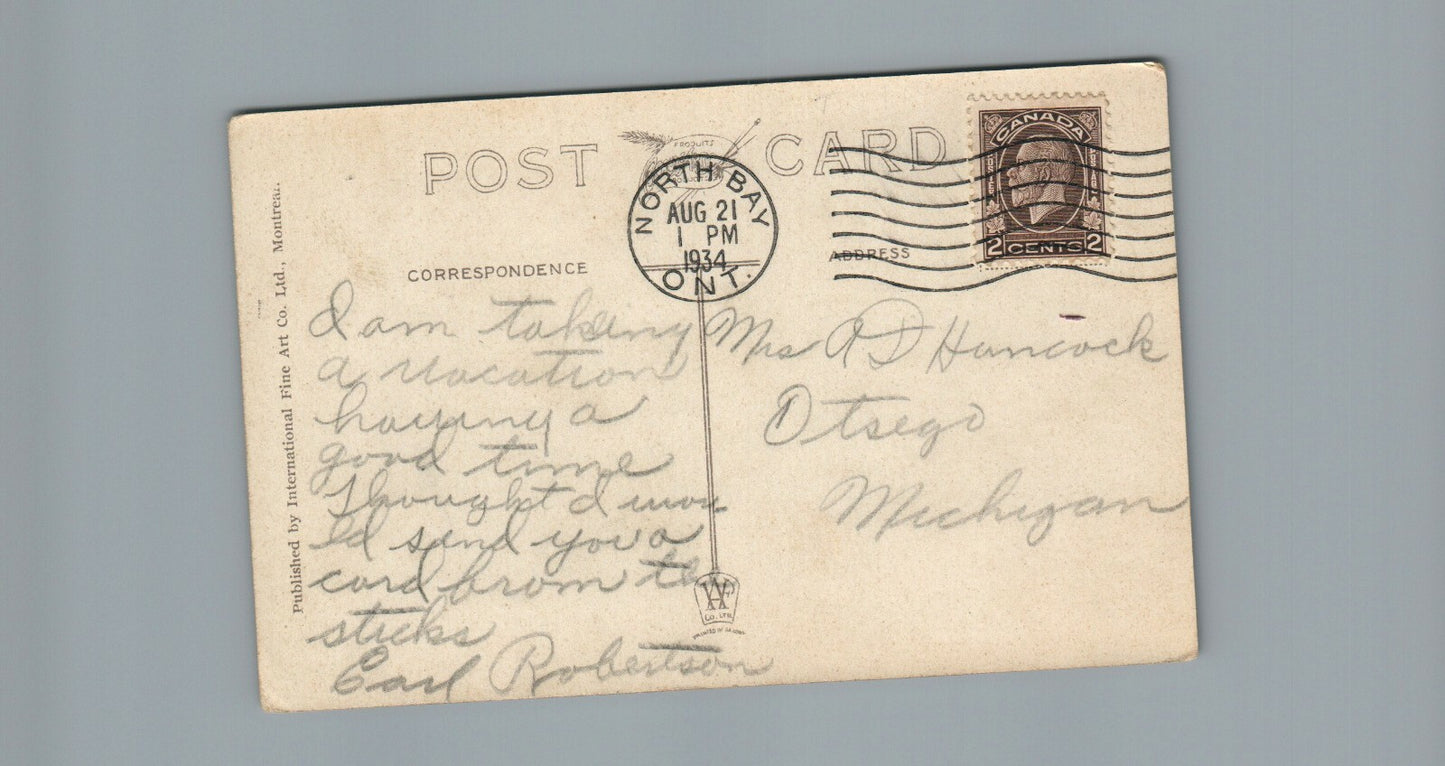 POST CARD
PRODUITS
NORTH BAY
AUG 21
1 PM
1934
ONT.
CANADA
2 CENTS 2
CORRESPONDENCE
ADDRESS
Published by International Fine Art Co. Ltd., Montreal.
I am taking
a vacation
having a
good time
Thought I wou
ld send you a
card from the
sticks
Earl Robertson
Mrs A D Hancock
Otsego
Michigan
Co. Ltd.